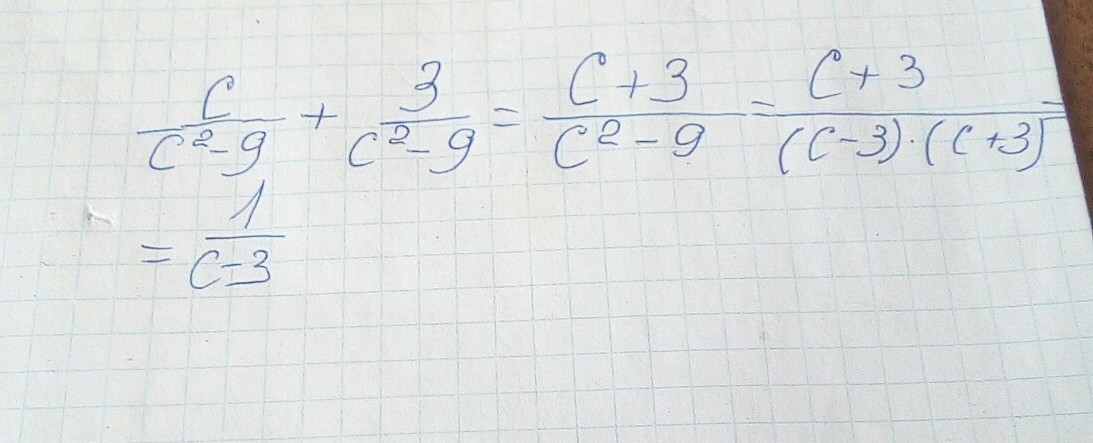 c/(c²-9) + 3/(c²-9) = (c+3)/(c²-9) = (c+3)/((c-3)·(c+3)) =
= 1/(c-3)